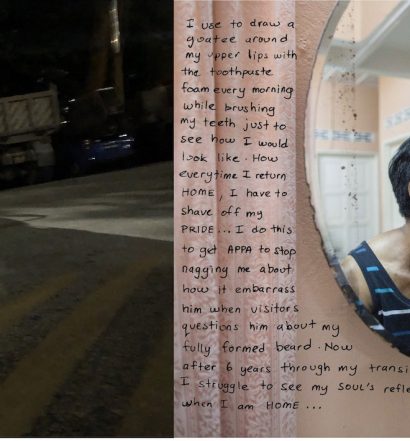 I use to draw a
goatee around
my upper lips with
the toothpaste
foam every morning
while brushing
my teeth just to
see how I would
look like. How
everytime I return
HOME, I have to
shave off my
PRIDE... I do this
to get APPA to stop
nagging me about
how it embarrass
him when visitors
questions him about my
fully formed beard. Now
after 6 years through my transi
I struggle to see my SOUL's refle
when I am HOME ...